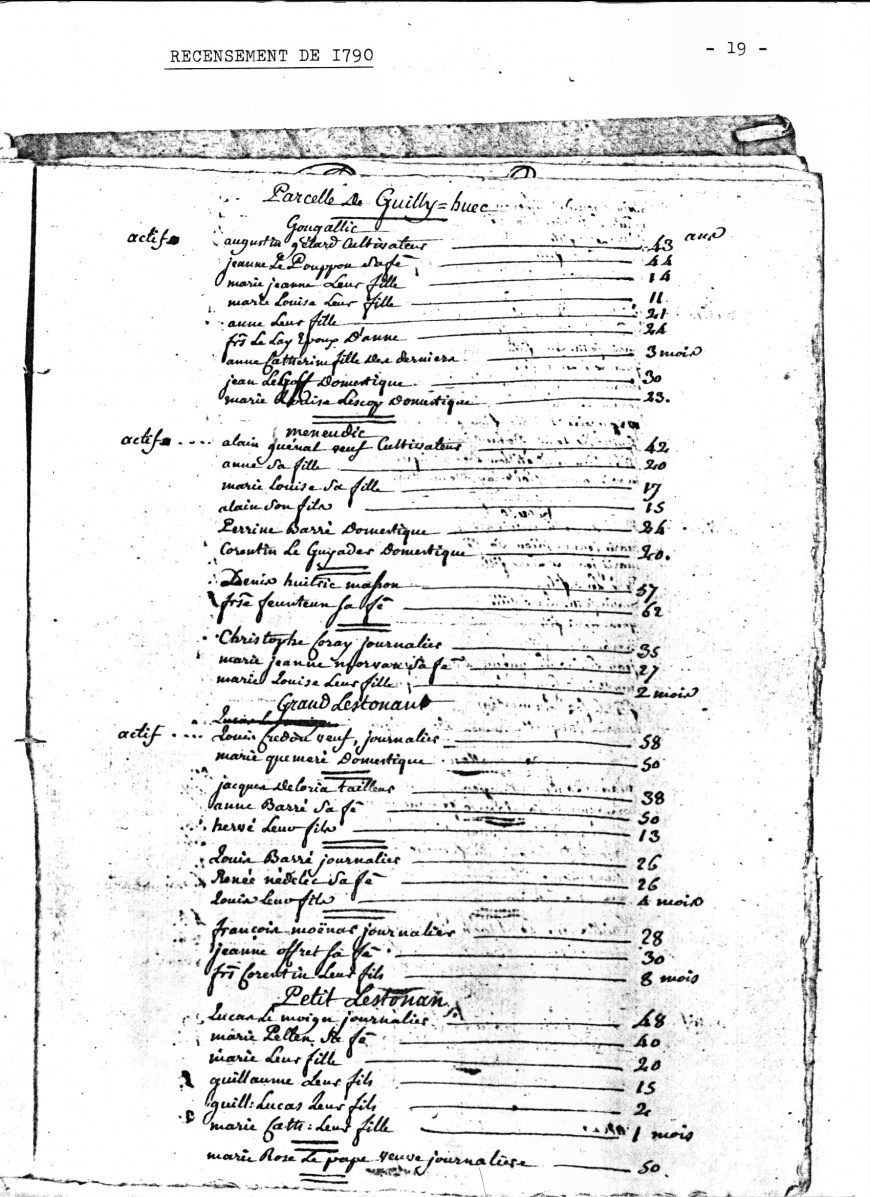 RECENSEMENT DE 1790
- 19 -
Parcelle de Guilly=huec
Gougallic
actifs augustin gélard Cultivateur 43 ans
jeanne Le Pouppon Sa fe 44
marie jeanne Leur fille 14
marie Louise Leur fille 11
anne Leur fille 21
frs Le Lay Epoux D'anne 24
anne Catherine fille des derniers 3 mois
jean Le Goff Domestique 30
marie Louise Lescop Domestique 23.
meneudic
actifs alain guénal veuf Cultivateur 42
anne Sa fille 20
marie Louise Sa fille 17
alain Son fils 15
Perrine Barré Domestique 24
Corentin Le Guyader Domestique 20.
Denis huitric masson 57
frse feunteun Sa fe 62
Christophe Coray journalier 35
marie jeanne morvan Sa fe 27
marie Louise Leur fille 2 mois
Grand Lestonant
Lucas
actif Louis Credou veuf, journalier 58
marie quemeré Domestique 50
jacques Deloria tailleur 38
anne Barré Sa fe 50
hervé Leur fils 13
Louis Barré journalier 26
Renée nédelec Sa fe 26
Louis Leur fils 4 mois
françois moënar journalier 28
jeanne offret Sa fe 30
frs Corentin Leur fils 8 mois
Petit Lestonan
Lucas Le moign journalier 48
marie Pellen Sa fe 40
marie Leur fille 20
guillaume Leur fils 15
guill: Lucas Leur fils 2
marie Cath: Leur fille 1 mois
marie Rose Le pape veuve journalière 50.